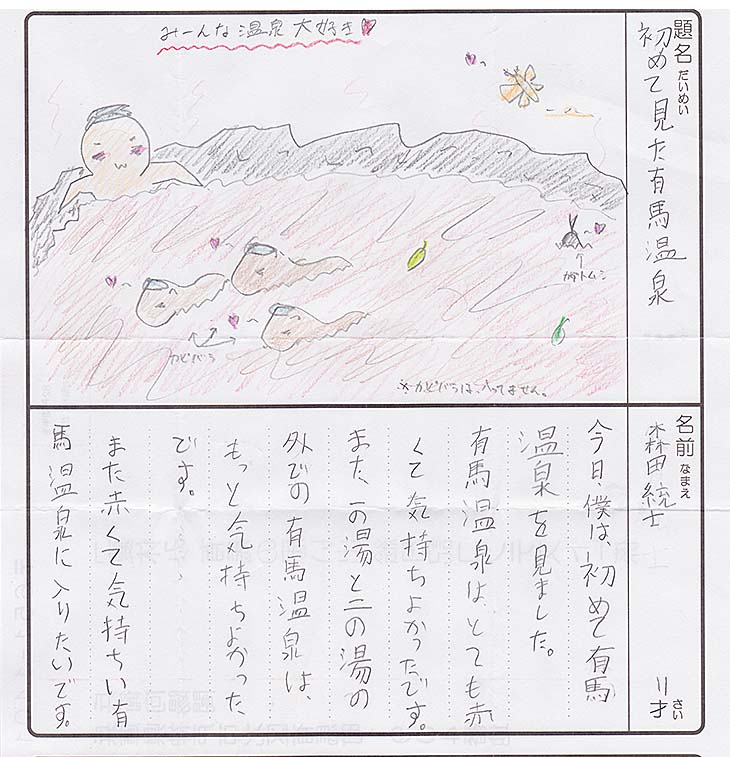 題名 だいめい
初めて見た有馬温泉
みーんな温泉大好き
カブトムシ
カピバラ
※カピバラは、入ってません。
名前 なまえ
森田統士
11才 さい
今日、僕は、初めて有馬
温泉を見ました。
有馬温泉はとても赤
くて気持ちよかったです。
また、一の湯と二の湯の
外での有馬温泉は、
もっと気持ちよかった、
です。
また赤くて気持ちい有
馬温泉に入りたいです。